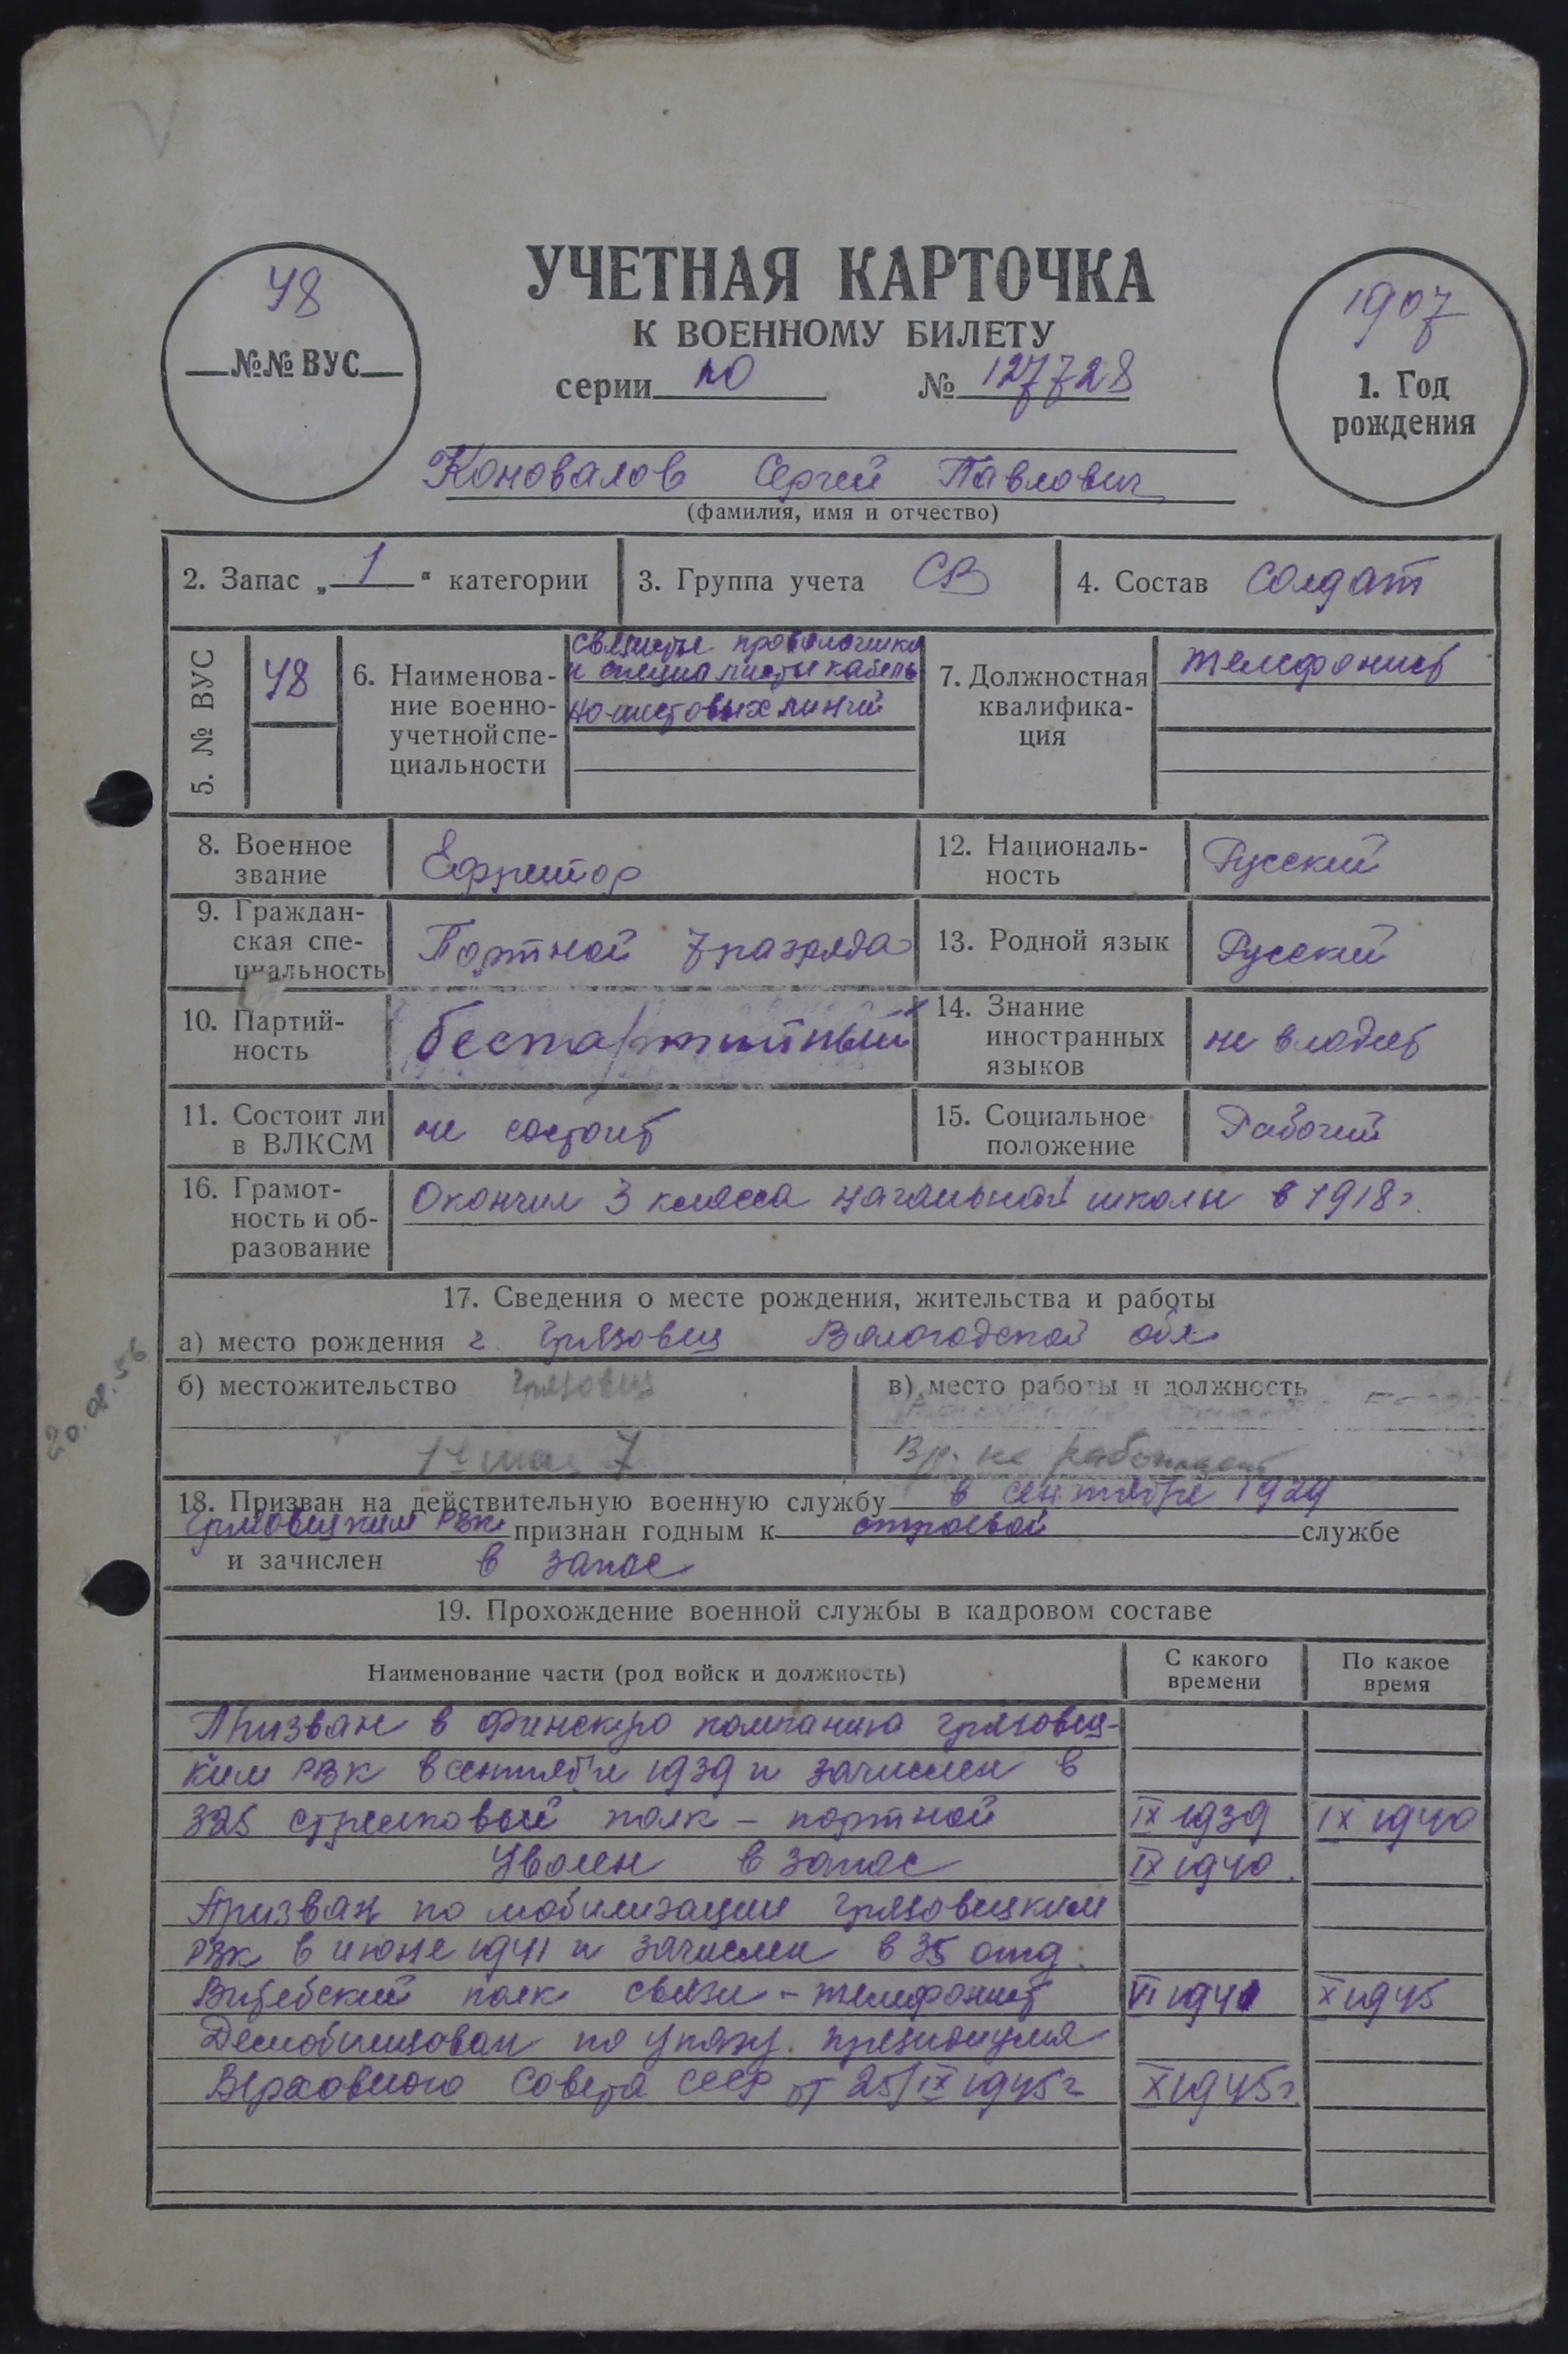 УЧЕТНАЯ КАРТОЧКА
К ВОЕННОМУ БИЛЕТУ
серии ПО № 127728
48
№№ ВУС
1907
1. Год
рождения
Коновалов Сергей Павлович
(фамилия, имя и отчество)
2. Запас „1“ категории
3. Группа учета СВ
4. Состав солдат
5. № ВУС
48
6. Наименова-
ние военно-
учетной спе-
циальности
связисты проволочники
и специалисты кабель
но шестовых линий
7. Должностная
квалифика-
ция
телефонист
8. Военное
звание
Ефрейтор
12. Националь-
ность
Русский
9. Граждан-
ская спе-
циальность
Портной 7 разряда
13. Родной язык
Русский
10. Партий-
ность
беспартийный
14. Знание
иностранных
языков
не владеет
11. Состоит ли
в ВЛКСМ
не состоит
15. Социальное
положение
Рабочий
16. Грамот-
ность и об-
разование
Окончил 3 класса начальной школы в 1918 г.
17. Сведения о месте рождения, жительства и работы
а) место рождения г. Грязовец Вологодской обл.
б) местожительство Грязовец
1е мая 7
в) место работы и должность
Вр. не работает
20.08.56
18. Призван на действительную военную службу в сентябре 1929
Грязовецким РВК признан годным к строевой службе
и зачислен в запас
19. Прохождение военной службы в кадровом составе
Наименование части (род войск и должность)
С какого
времени
По какое
время
Призван в Финскую компанию Грязовец-
ким РВК в сентябре 1939 и зачислен в
325 стрелковый полк – портной IX 1939 IX 1940
Уволен в запас IX 1940.
Призван по мобилизации Грязовецким
РВК в июне 1941 и зачислен в 35 отд.
Витебский полк связи – телефонист VI 1941 X 1945
Демобилизован по указу президиума
Верховного Совета СССР от 25/IX 1945 г X 1945 г.